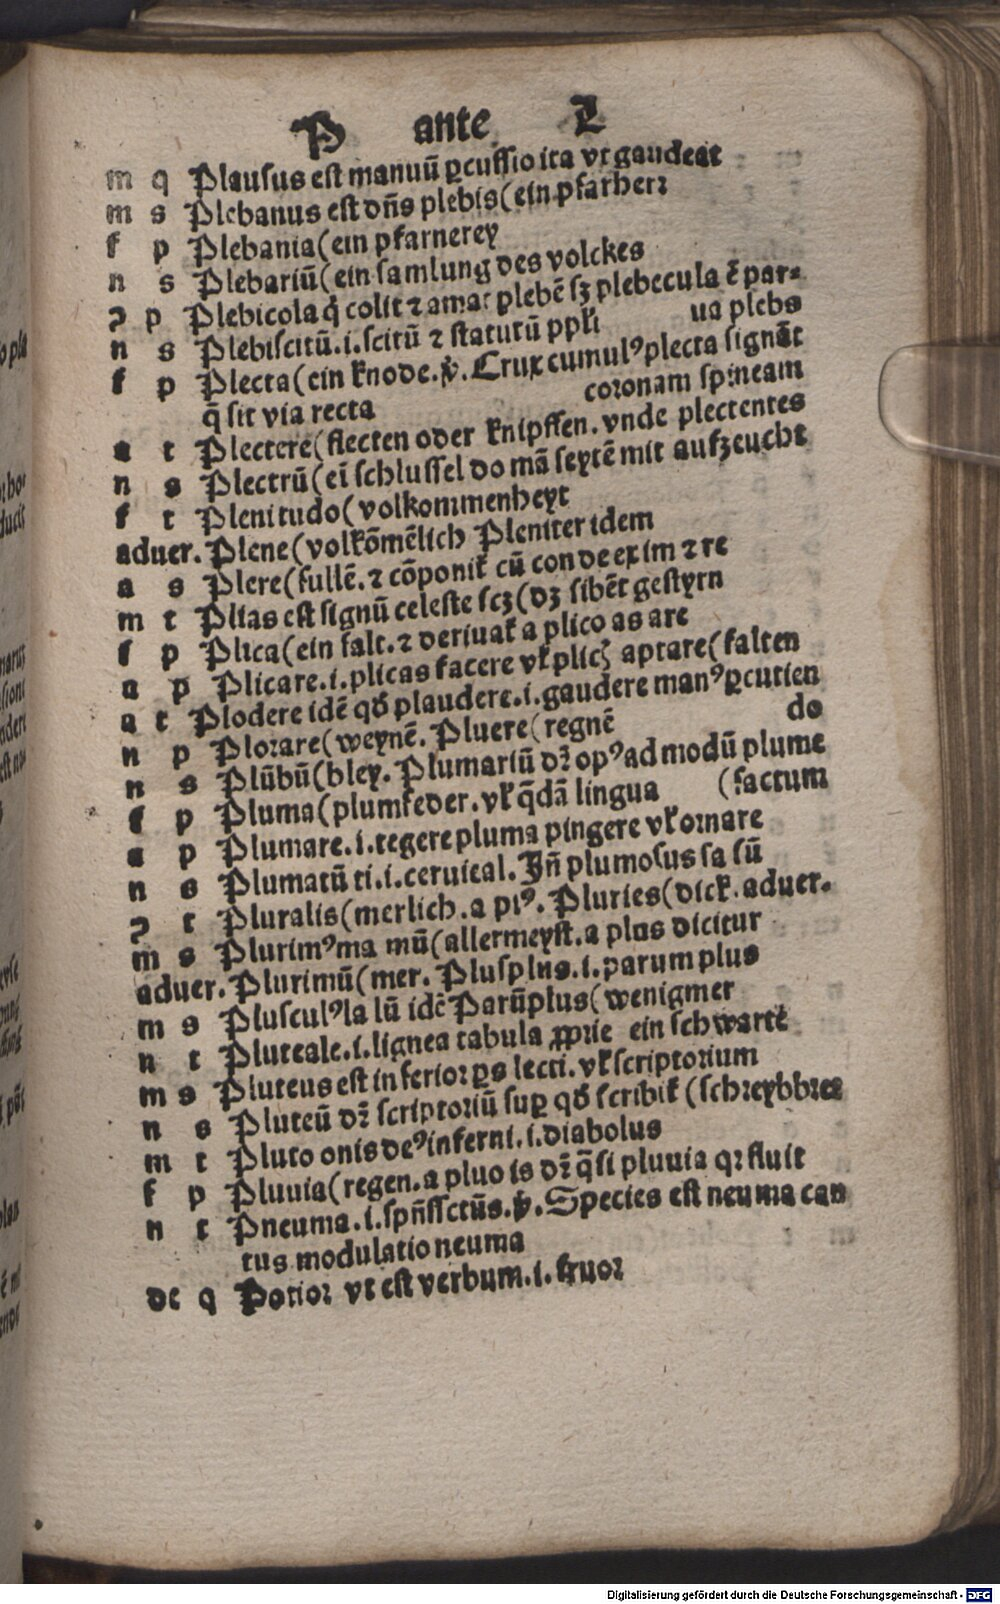 P ante L
m q Plausus est manuū ꝑcussio ita vt gaudeat
m s Plebanus est dn̄s plebis (ein pfarherꝛ
f p Plebania (ein pfarnerey
n s Plebariū (ein samlung des volckes
ꝯ p Plebicola q̇ colit ⁊ amat plebē sꝫ plebecula ē par-
n s Plebiscitū .i. scitū ⁊ statutū ppl̓i ua plebs
f p Plecta (ein knode. v̓. Crux cumulꝰ plecta signāt
q̄ sit via recta coronam spineam
a t Plectere (flecten oder knipffen. vnde plectentes
n s Plectrū (eī schlussel do mā seytē mit aufzeucht
f t Plenitudo (volkommenheyt
aduer. Plene (volkōmēlich Pleniter idem
a s Plere (fullē. ⁊ cōponit̉ cū con de ex im ⁊ re
m t Plias est signū celeste scꝫ (dz sibēt gestyrn
f p Plica (ein falt. ⁊ deriuat̉ a plico as are
a p Plicare .i. plicas facere vl̓ plicꝭ aptare (falten
a t Plodere idē qđ plaudere .i. gaudere manꝰ ꝑcutien
n p Ploꝛare (weynē. Pluere (regnē do
n s Plūbū (bley. Plumariū dꝛ̄ opꝰ ad modū plume
f p Pluma (plumfeder. vl̓ q̄dā lingua (factum
a p Plumare .i. tegere pluma pingere vl̓ oꝛnare
n s Plumatū ti .i. ceruical. Jn̄ plumosus sa sū
ꝯ t Pluralis (merlich. a plꝰ. Pluries (dick. aduer.
m s Plurimꝰ ma mū (allermeyst. a plus dicitur
aduer. Plurimū (mer. Plusplus .i. parum plus
m s Plusculꝰ la lū idē Parūplus (wenigmer
n t Pluteale .i. lignea tabula ꝓprie ein schwartē
m s Pluteus est inferioꝛ ꝑs lecti. vl̓ scriptoꝛium
n s Pluteū dꝛ̄ scriptoꝛiū suꝑ qđ scribit̉ (schꝛeybbꝛet
m t Pluto onis deꝰ inferni .i. diabolus
f p Pluuia (regen. a pluo is dꝛ̄ q̄si pluuia qꝛ fluit
n t Pneuma .i. spn̄ssctūs. v̓. Species est neuma can
tus modulatio neuma
de q Potioꝛ vt est verbum .i. fruoꝛ
Digitalisierung gefördert durch die Deutsche Forschungsgemeinschaft - DFG